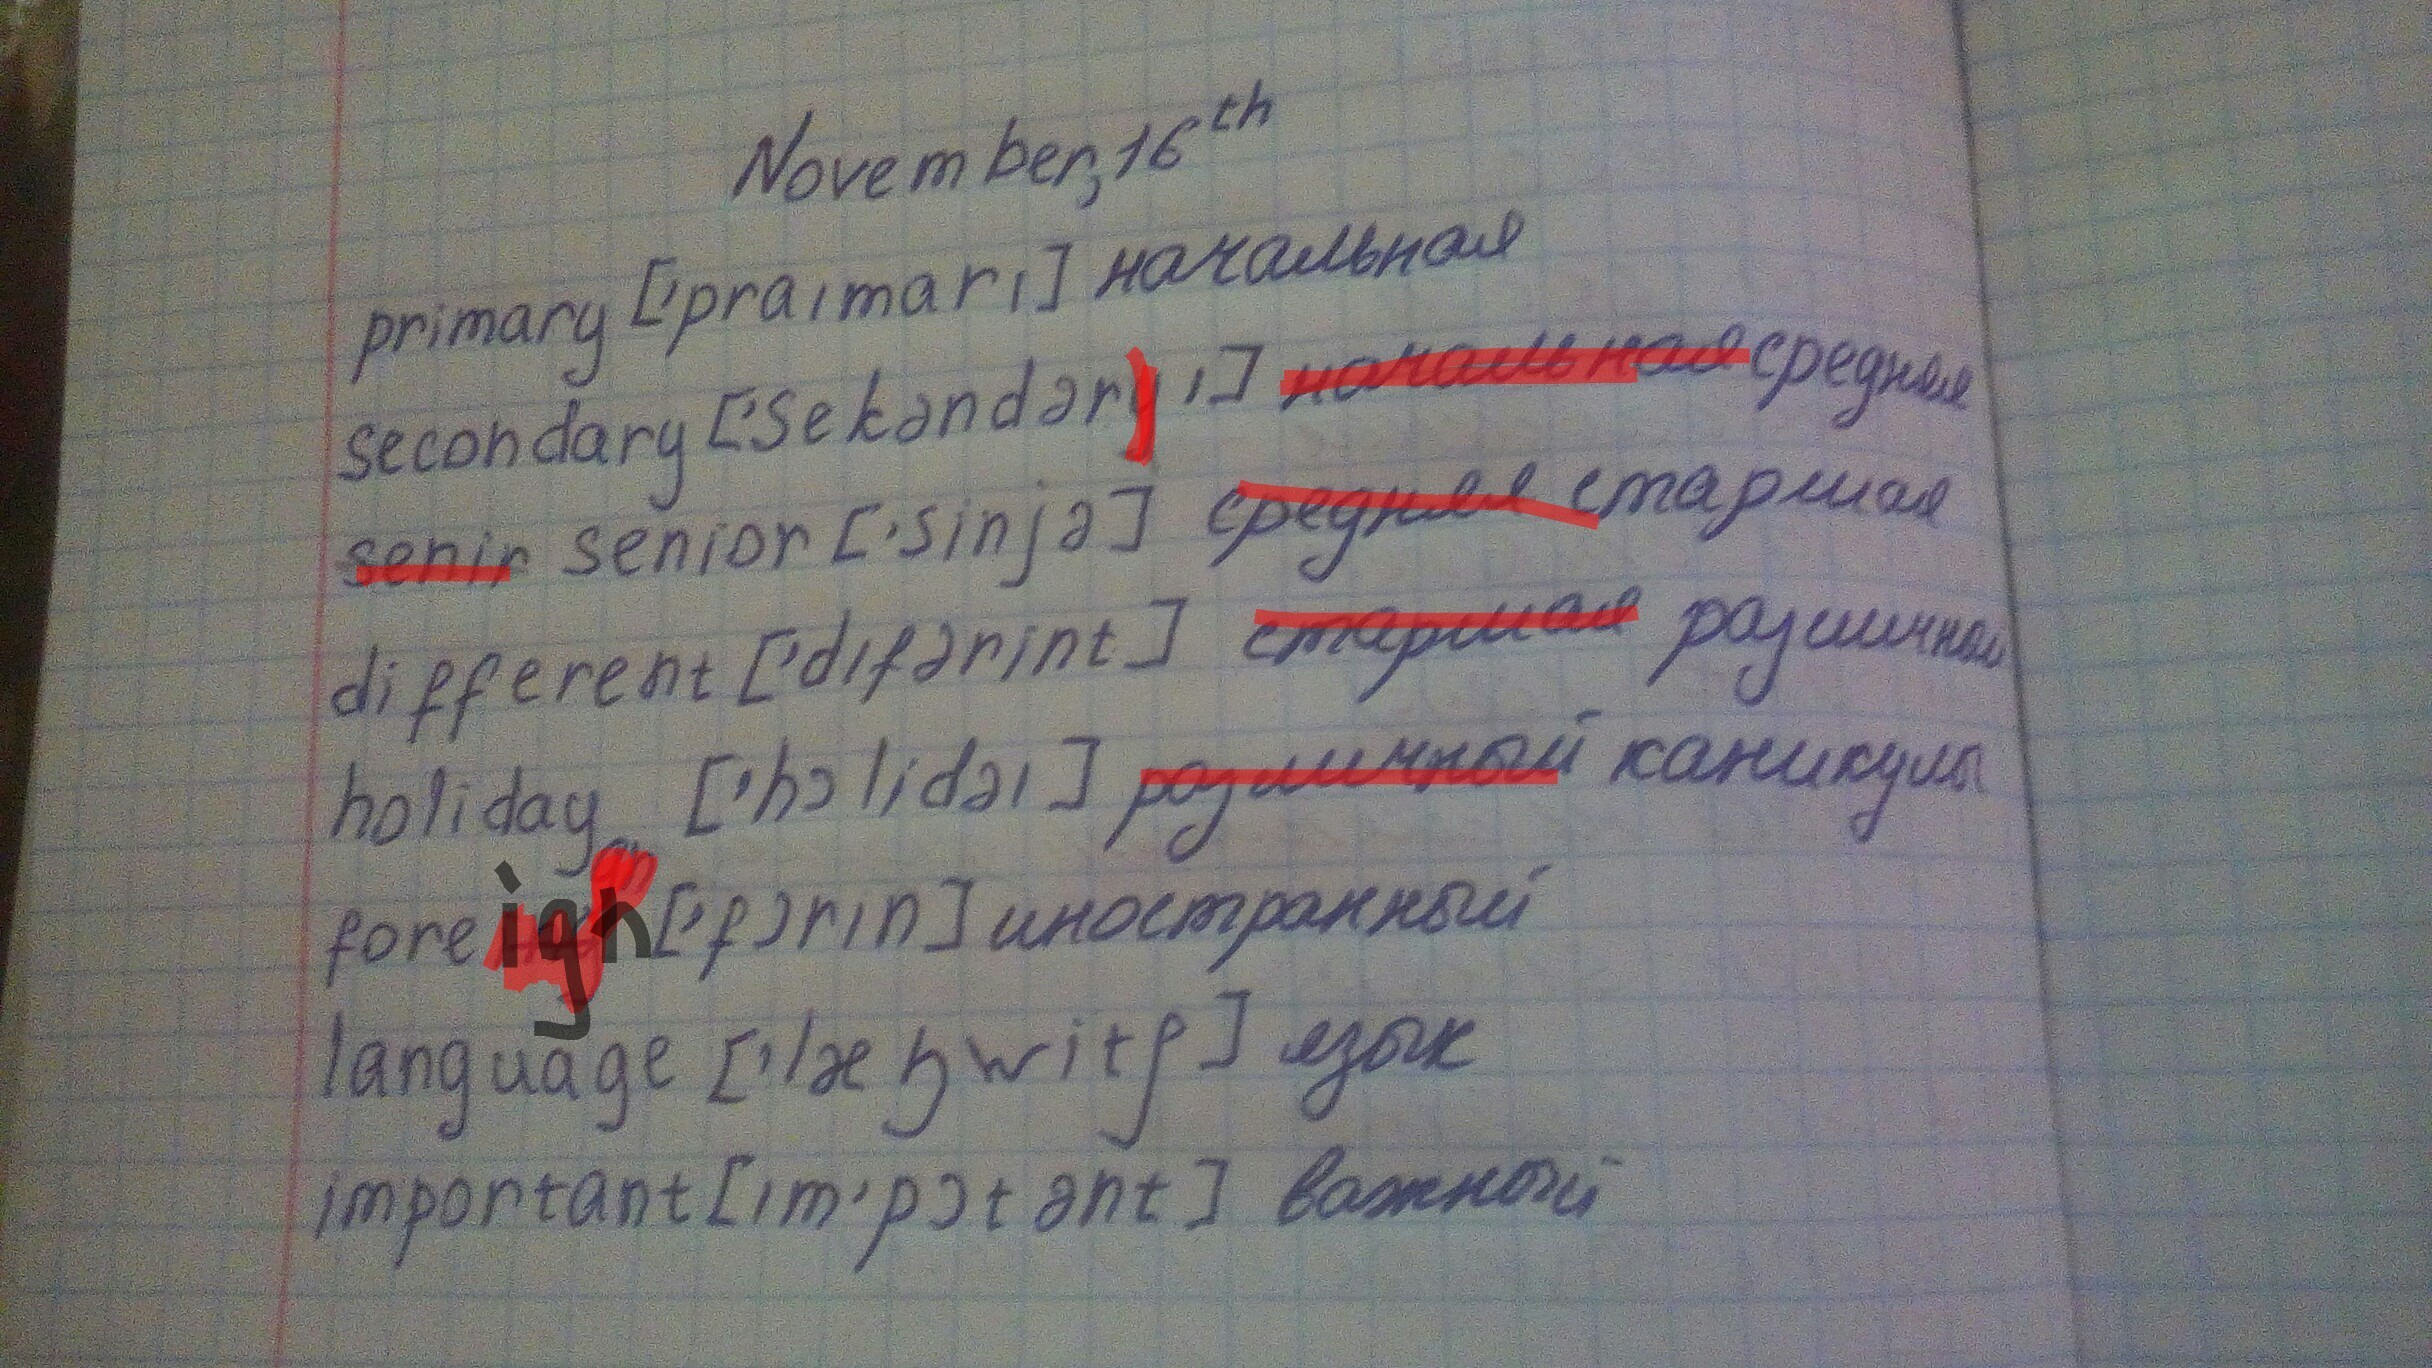 November, 16th
primary ['praımarı] начальная
secondary ['sekəndərı] начальная средняя
senir senior ['sinjə] средняя старшая
different ['dıfərint] старшая различный
holiday ['hɔlidəı] различный каникулы
foreign ['fɔrın] иностранный
language ['læŋwitʃ] язык
important [ım'pɔtənt] важный